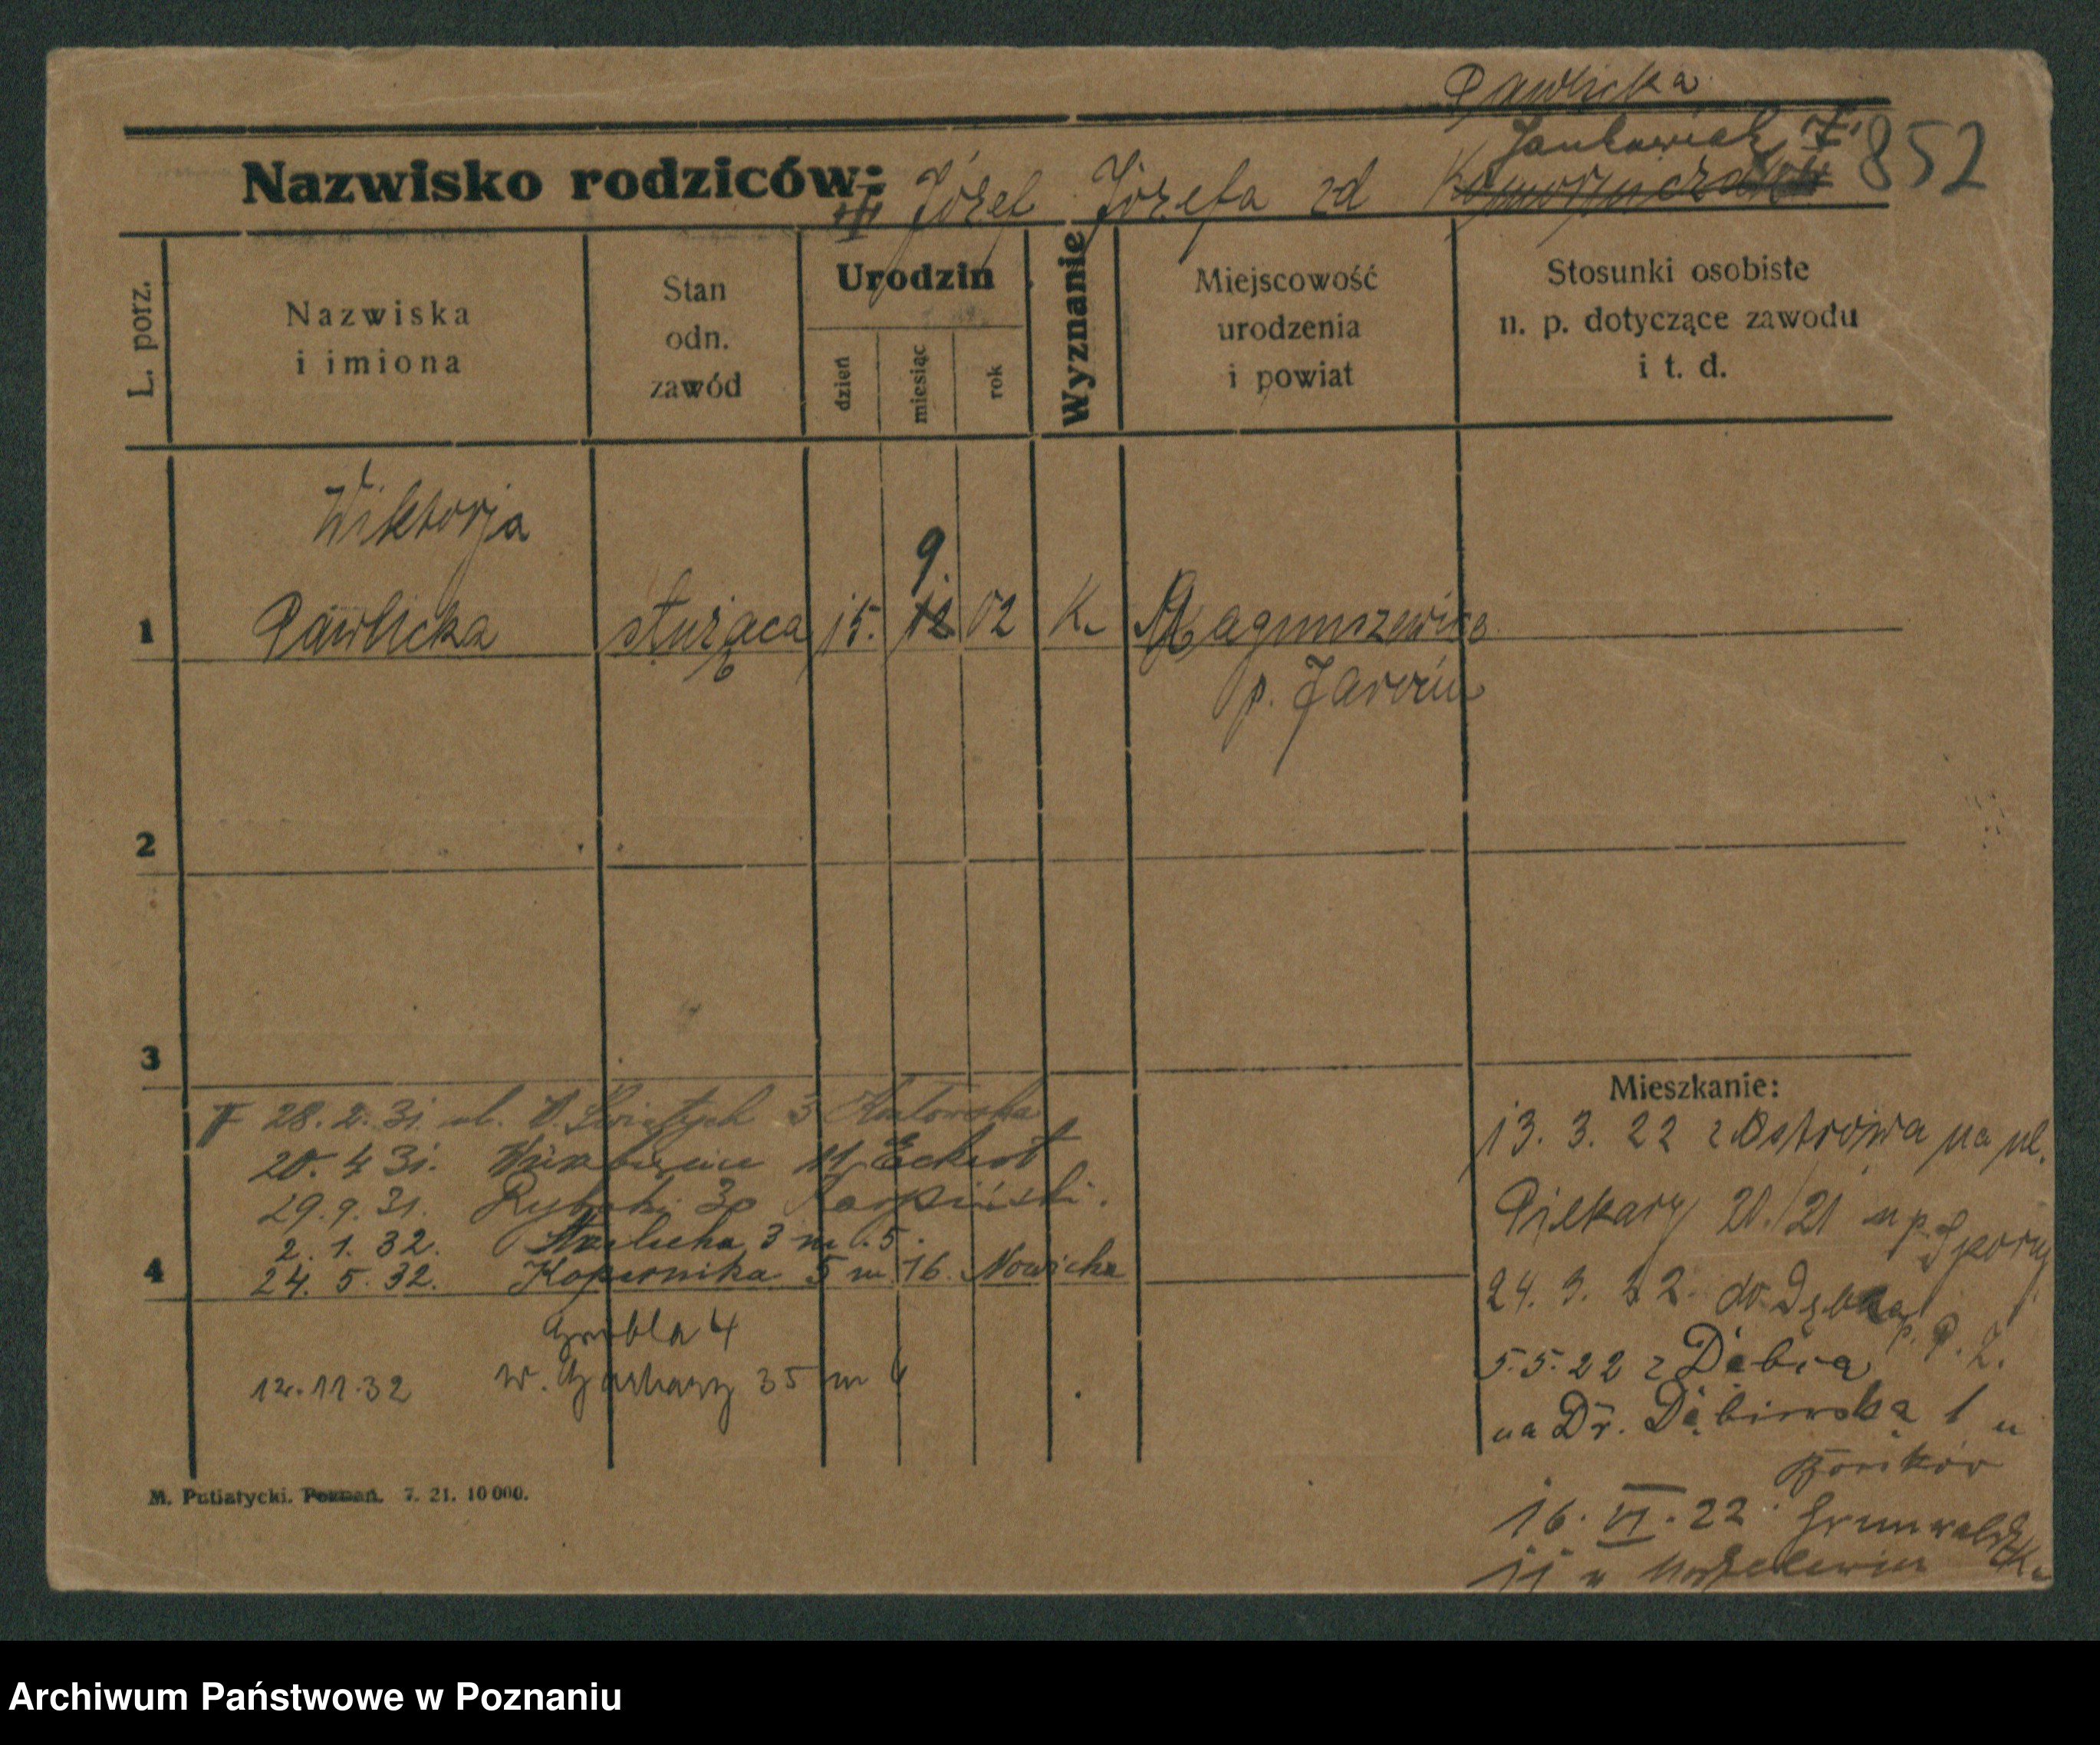 Pawlicka
Jankowiak
852
Nazwisko rodziców: Józef Józefa zd
L. porz.
Nazwiska i imiona
Stan odn. zawód
Urodzin
dzień
miesiąc
rok
Wyznanie
Miejscowość urodzenia i powiat
Stosunki osobiste n. p. dotyczące zawodu i t. d.
Wiktorja
9.
1 Pawlicka służąca 15. 12 02 K. Maguszewice
p. Jarocin
2
3
Mieszkanie:
28. 2. 31. ul. W. Świętych 3
20. 4 31. 11 Eckert
29. 9. 31. Rybaki 30 Karpiński.
2. 1. 32. Strzelecka 3 m. 5.
4 24. 5. 32. Kopernika 5 m 16 Nowicka
Grobla 4
12.11.32 W. Garbary 35 m
13. 3. 22 z Ostrowa na ul.
Piekary 20/21 u p.
24. 3. 22. do
5.5.22 z
na Dr. Dębińska 1 u
16. VI. 22 Grunwaldzka
11 u
M. Putiatycki. Poznań. 7. 21. 10 000.
Archiwum Państwowe w Poznaniu